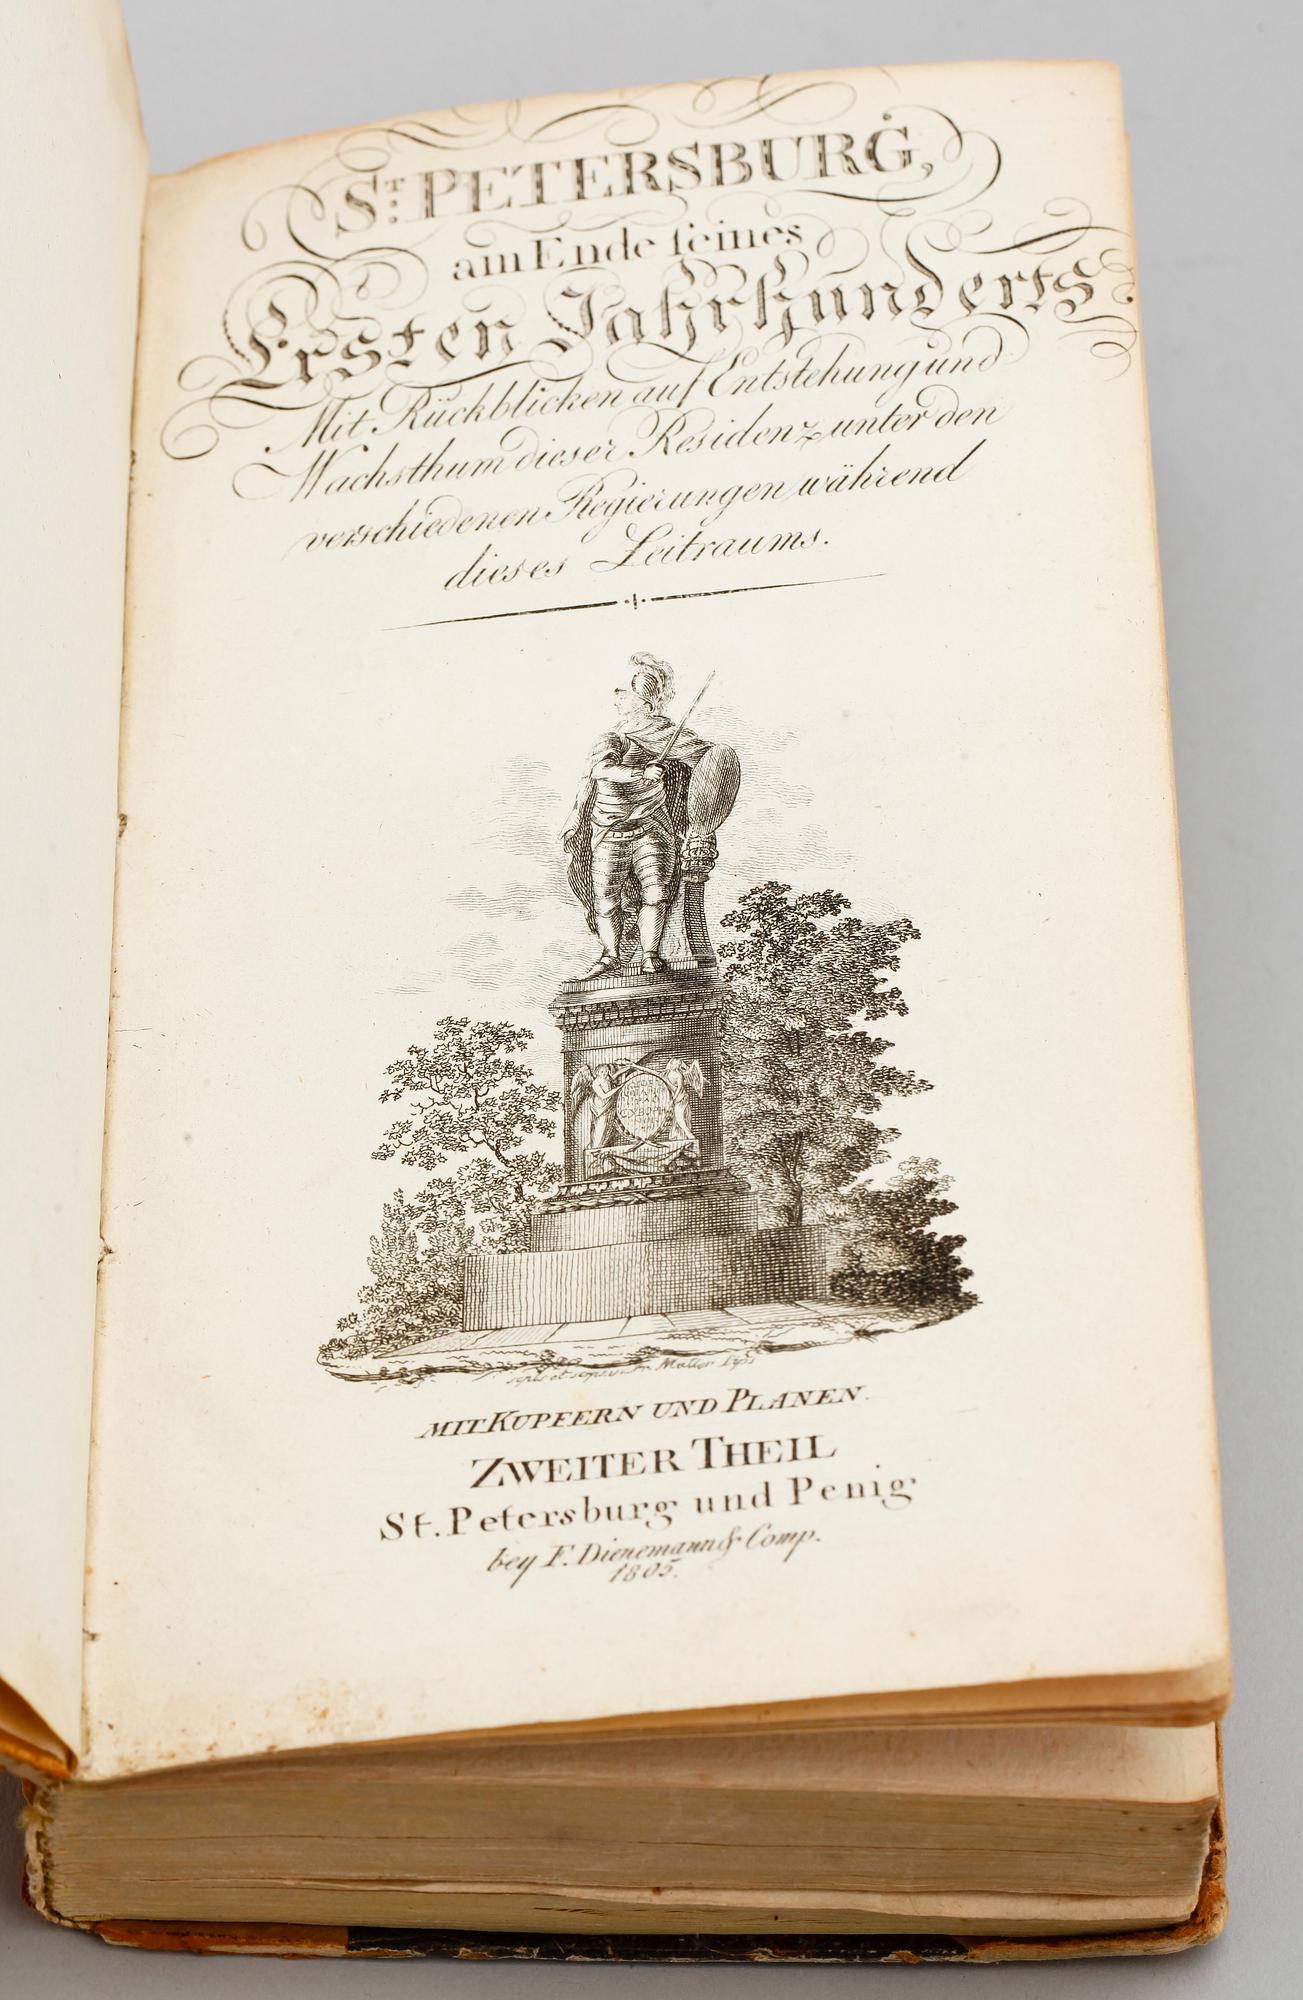 St: PETERSBURG,
am Ende ſeines
Ersten Jahrhunderts.
Mit Rückblicken auf Entstehung und
Wachsthum dieser Residenz unter den
verschiedenen Regierungen während
dieses Zeitraums.
MIT KUPFERN UND PLANEN.
ZWEITER THEIL
St. Petersburg und Penig
bey F. Dienemann & Comp.
1805.